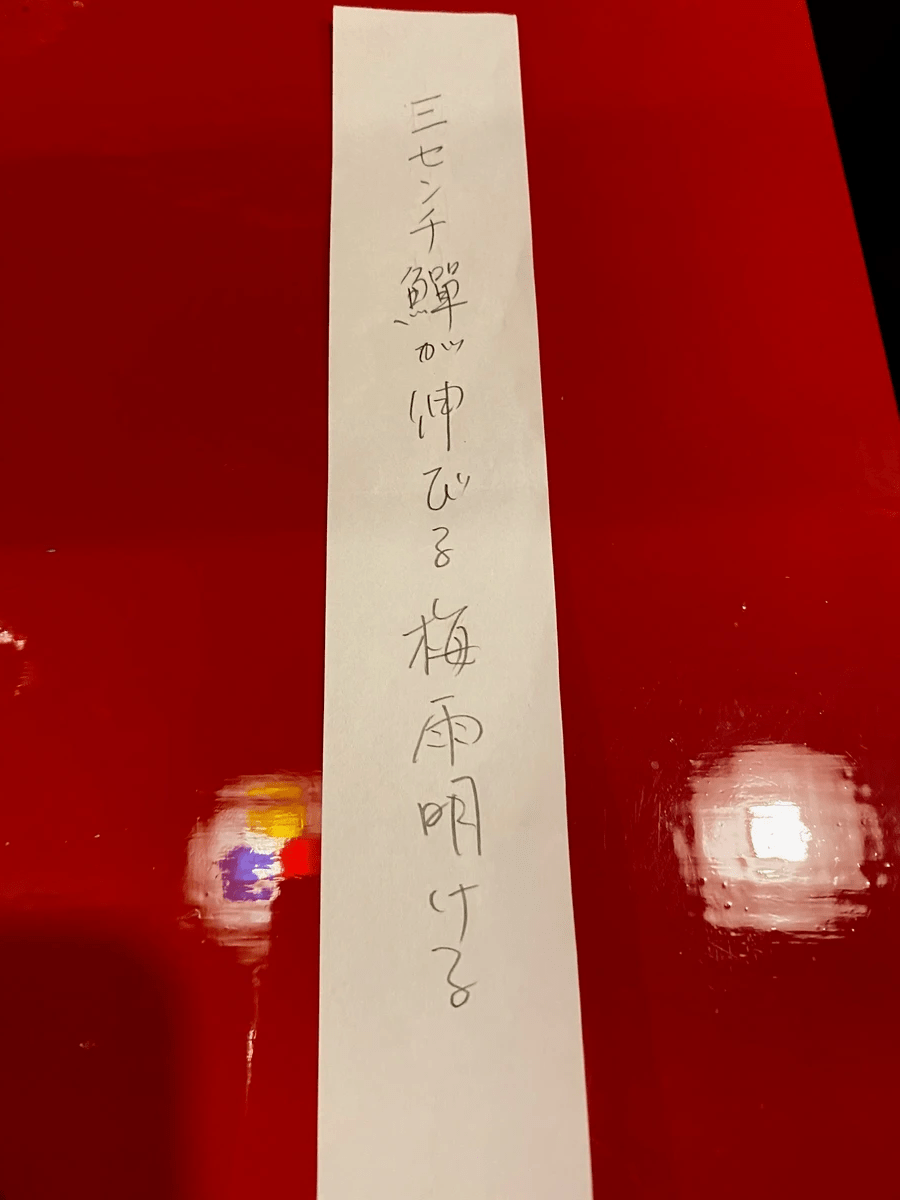 三センチ鱓が伸びる梅雨明ける